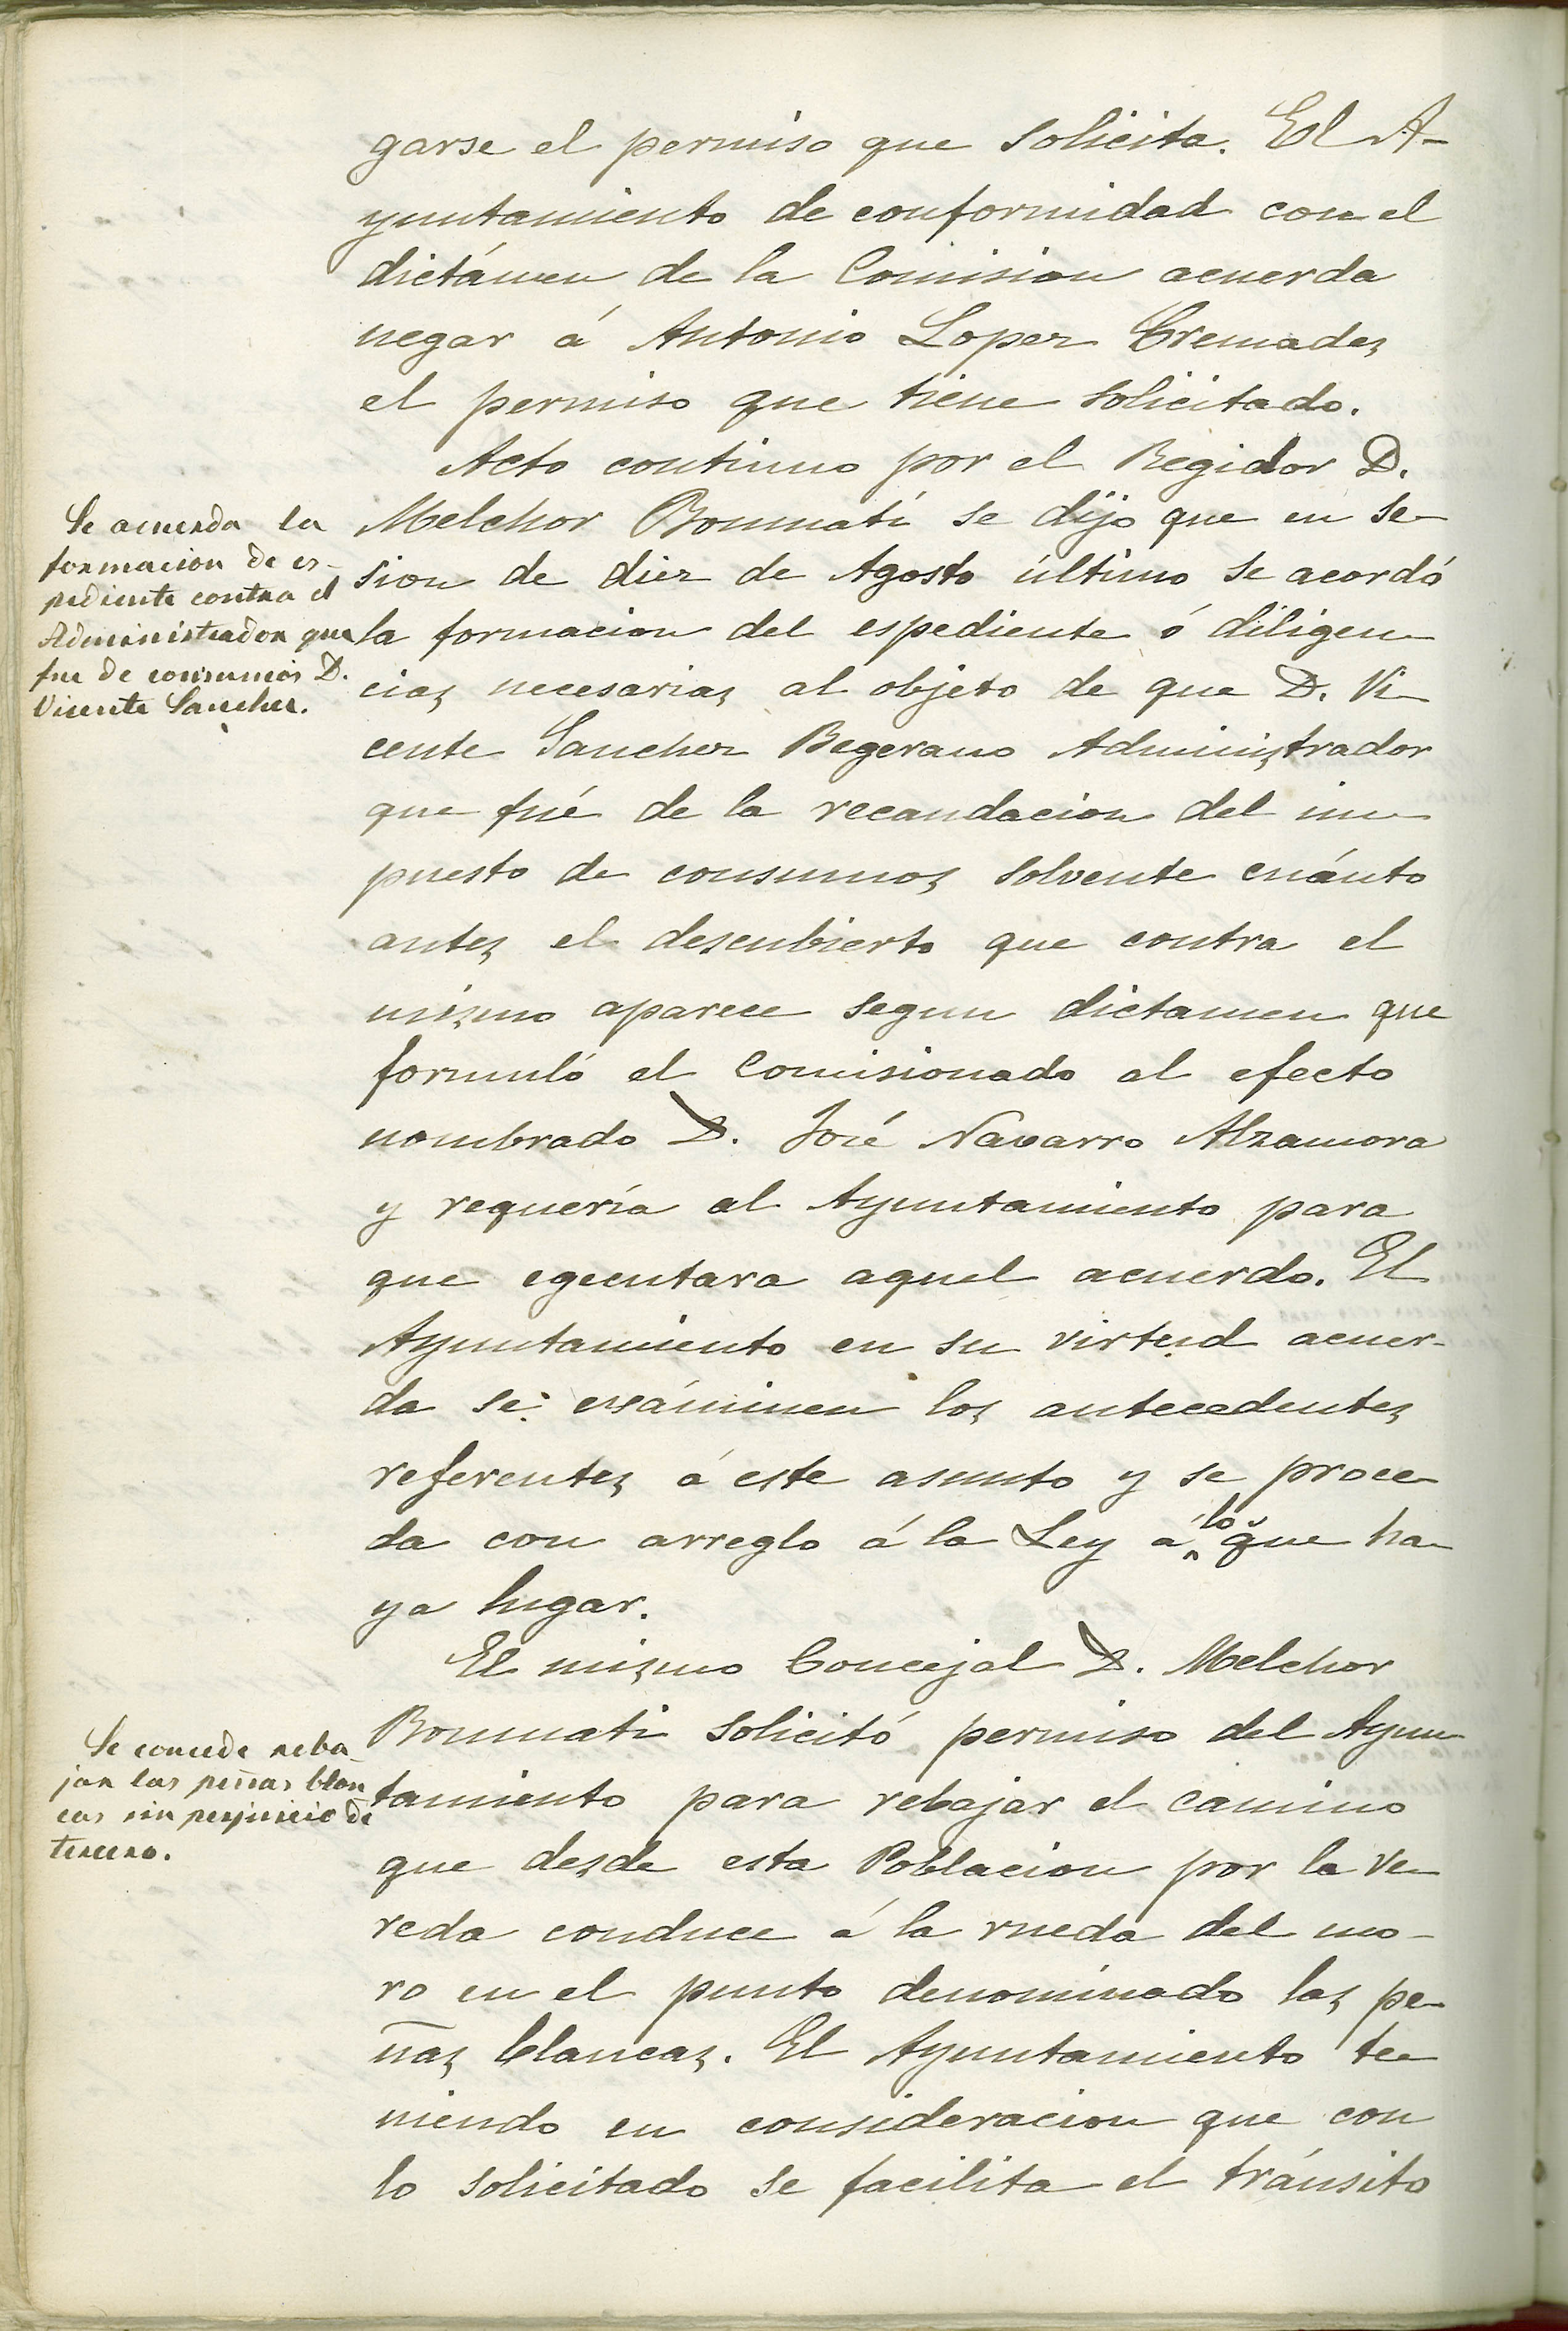 garse el permiso que solicita. El A-
yuntamiento de conformidad con el
dictámen de la Comision acuerda
negar á Antonio Lopez Cremades
el permiso que tiene solicitado.
Acto continuo por el Regidor D.
Se acuerda la
formacion de es-
pediente contra el
Administrador que
fue de consumos D.
Vicente Sanchez.
Melchor Bonmatí se dijo que en se-
sion de diez de Agosto último se acordó
la formacion del espediente ó diligen-
cias necesarias al objeto de que D. Vi-
cente Sanchez Begerano Administrador
que fué de la recaudacion del im-
puesto de consumos solvente cuánto
antes el descubierto que contra el
mismo aparece segun dictamen que
formuló el Comisionado al efecto
nombrado D. José Navarro Alzamora
y requería al Ayuntamiento para
que egecutara aquel acuerdo. El
Ayuntamiento en su virtud acuer-
da se exáminen los antecedentes
referentes á este asunto y se proce-
da con arreglo á la Ley á lo que ha-
ya lugar.
El mismo Concejal D. Melchor
Se concede reba-
jar las peñas blan
cas sin perjuicio de
tercero.
Bonmati solicitó permiso del Ayun-
tamiento para rebajar el camino
que desde esta Poblacion por la ve-
reda conduce á la rueda del mo-
ro en el punto denominado las pe-
ñas blancas. El Ayuntamiento te-
niendo en consideracion que con
lo solicitado se facilita el tránsito